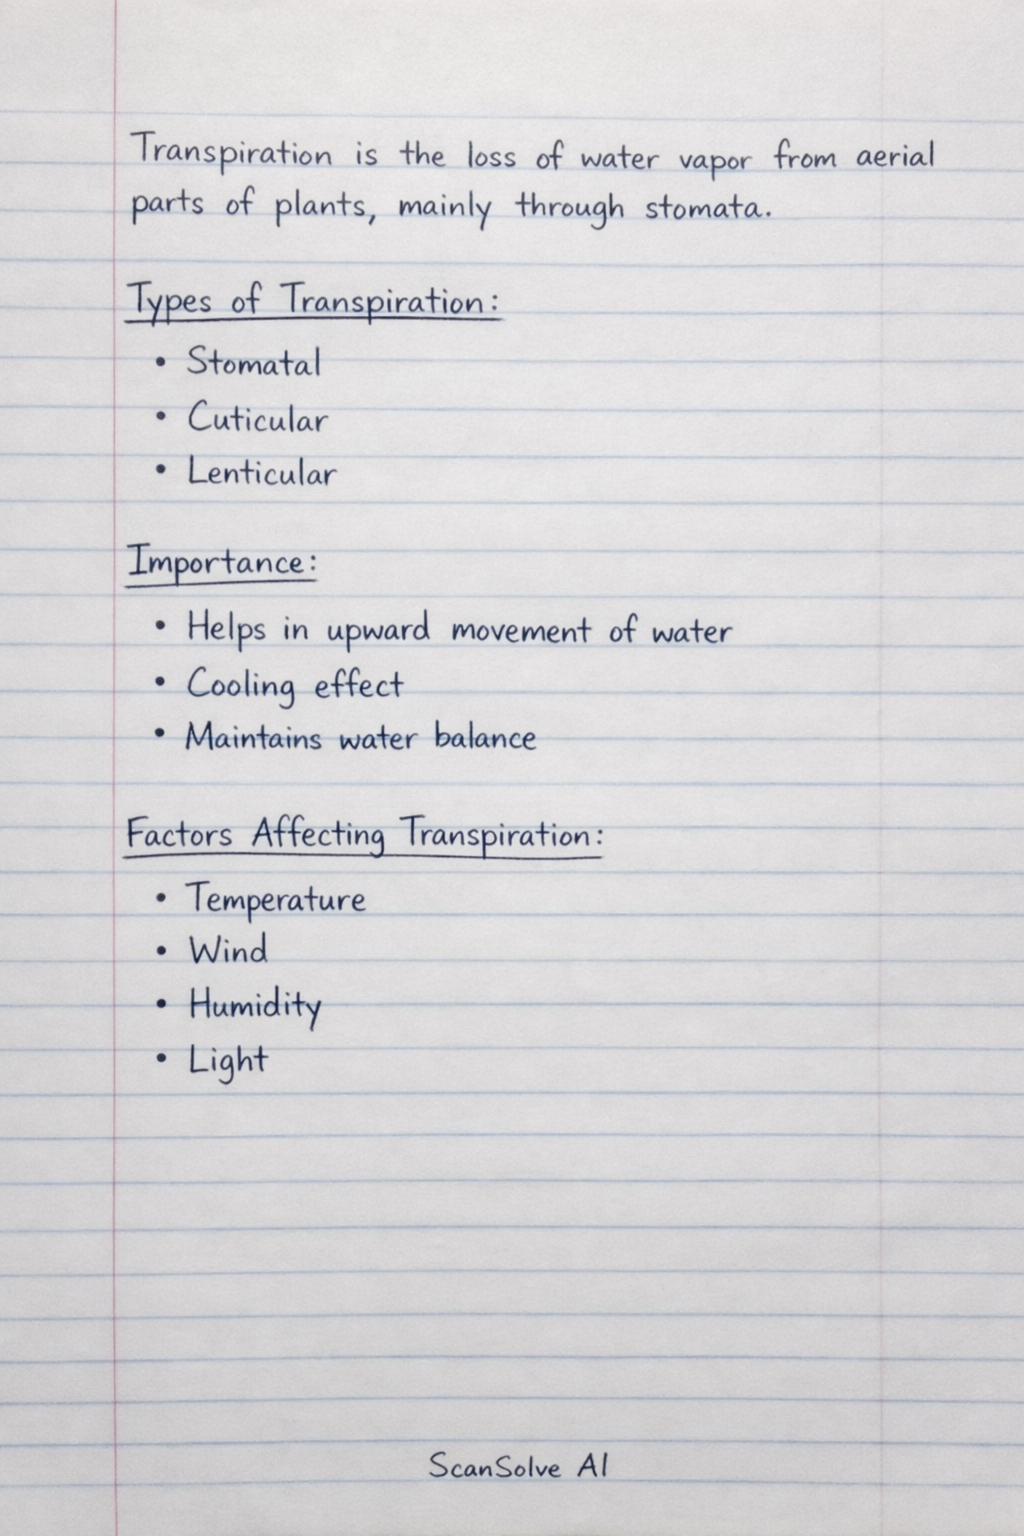 Transpiration is the loss of water vapor from aerial
parts of plants, mainly through stomata.
Types of Transpiration:
• Stomatal
• Cuticular
• Lenticular
Importance:
• Helps in upward movement of water
• Cooling effect
• Maintains water balance
Factors Affecting Transpiration:
• Temperature
• Wind
• Humidity
• Light
ScanSolve AI